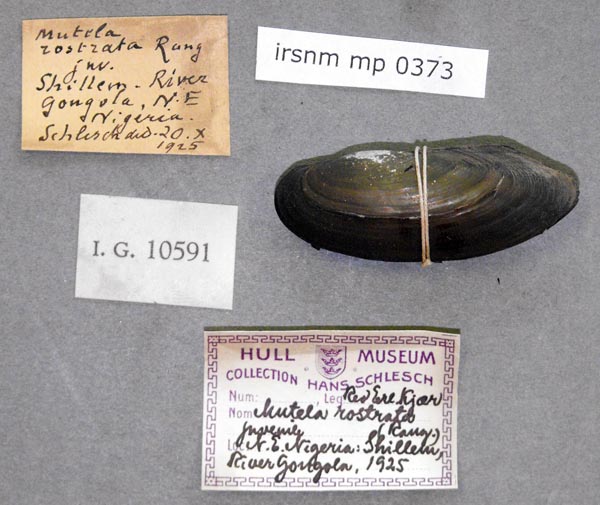 Mutela
rostrata Rang
juv.
Shillem. River
Gongola, N.E
Nigeria.
Schlesch ded. 20.X
1925
irsnm mp 0373
I. G. 10591
HULL MUSEUM
COLLECTION HANS SCHLESCH
Num: , Leg Rev Ere. Kjær
Nom Mutela rostrata
juvenile (Rang.)
Loc N.E. Nigeria: Shillem,
River Gongola, 1925